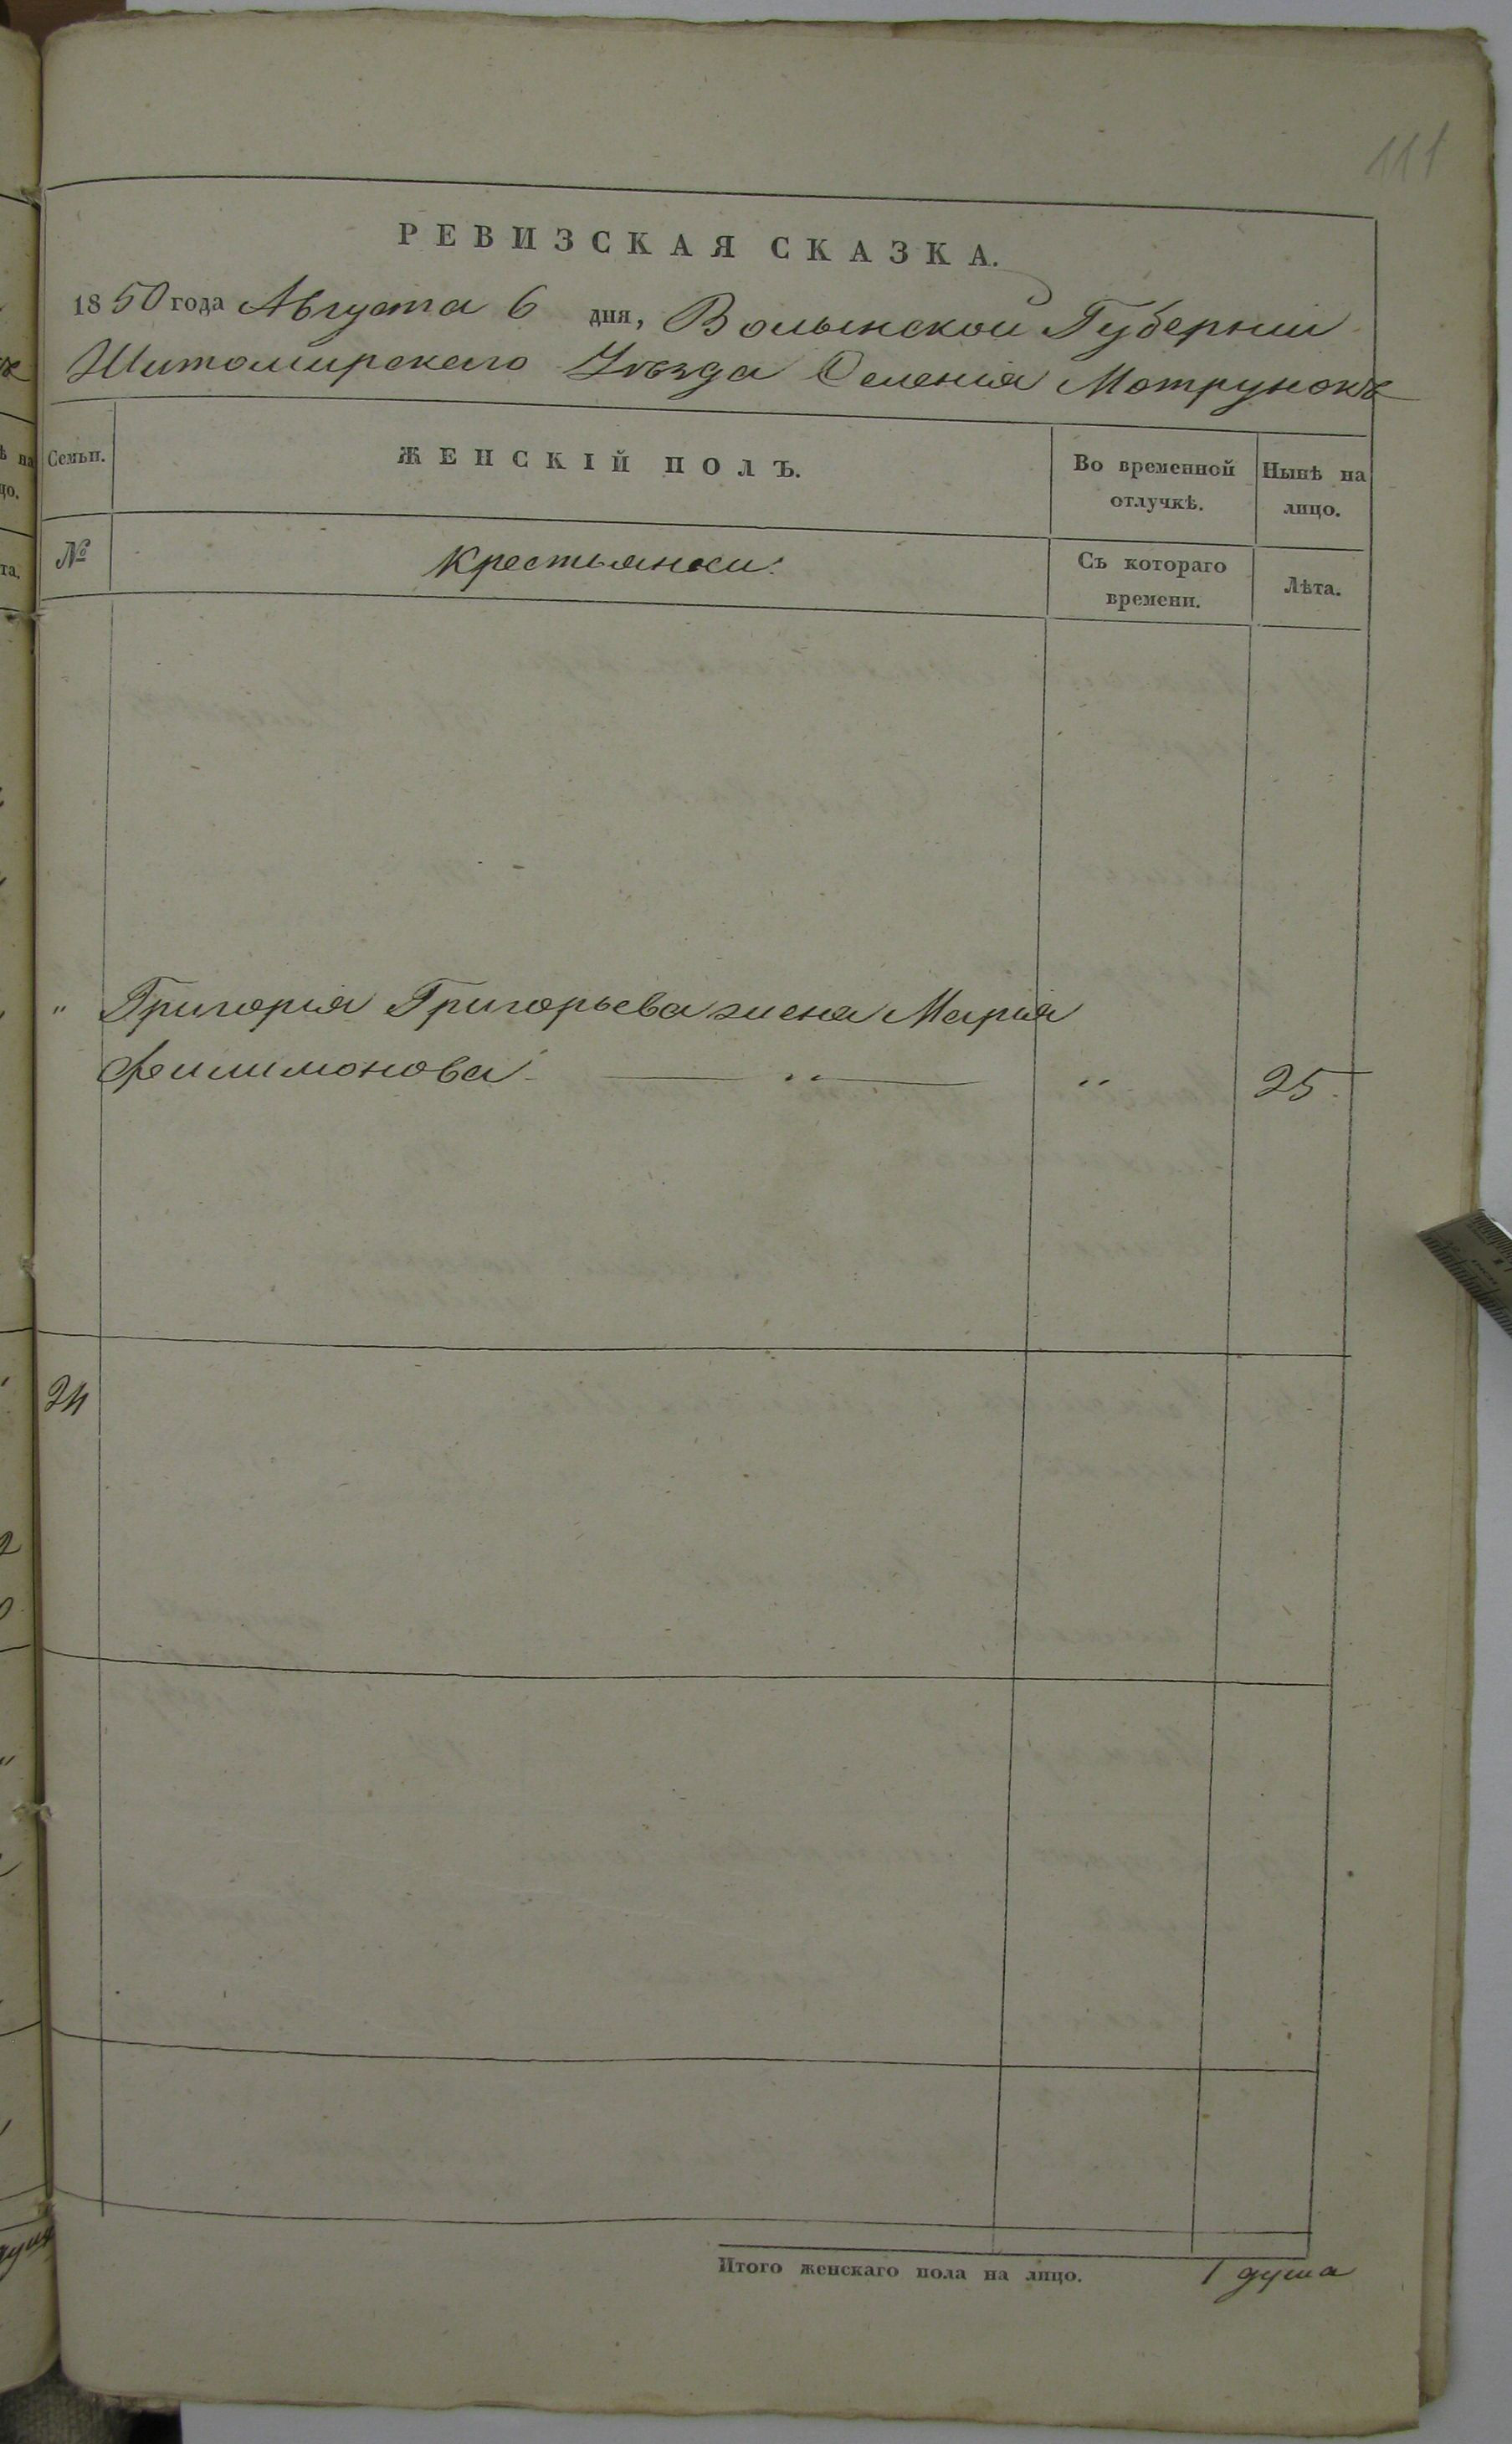 111
РЕВИЗСКАЯ СКАЗКА.
1850 года Августа 6 дня, Волынской Губерніи
Житомирскаго Уѣзда Селенія Мотрунокъ
Семьи. ЖЕНСКІЙ ПОЛЪ. Во временной отлучкѣ. Нынѣ на лицо.
№ Крестьянки. Съ котораго времени. Лѣта.
" Григорія Григорьева жена Марія
Филимонова " " 25.
24
Итого женскаго пола на лицо. 1 душа